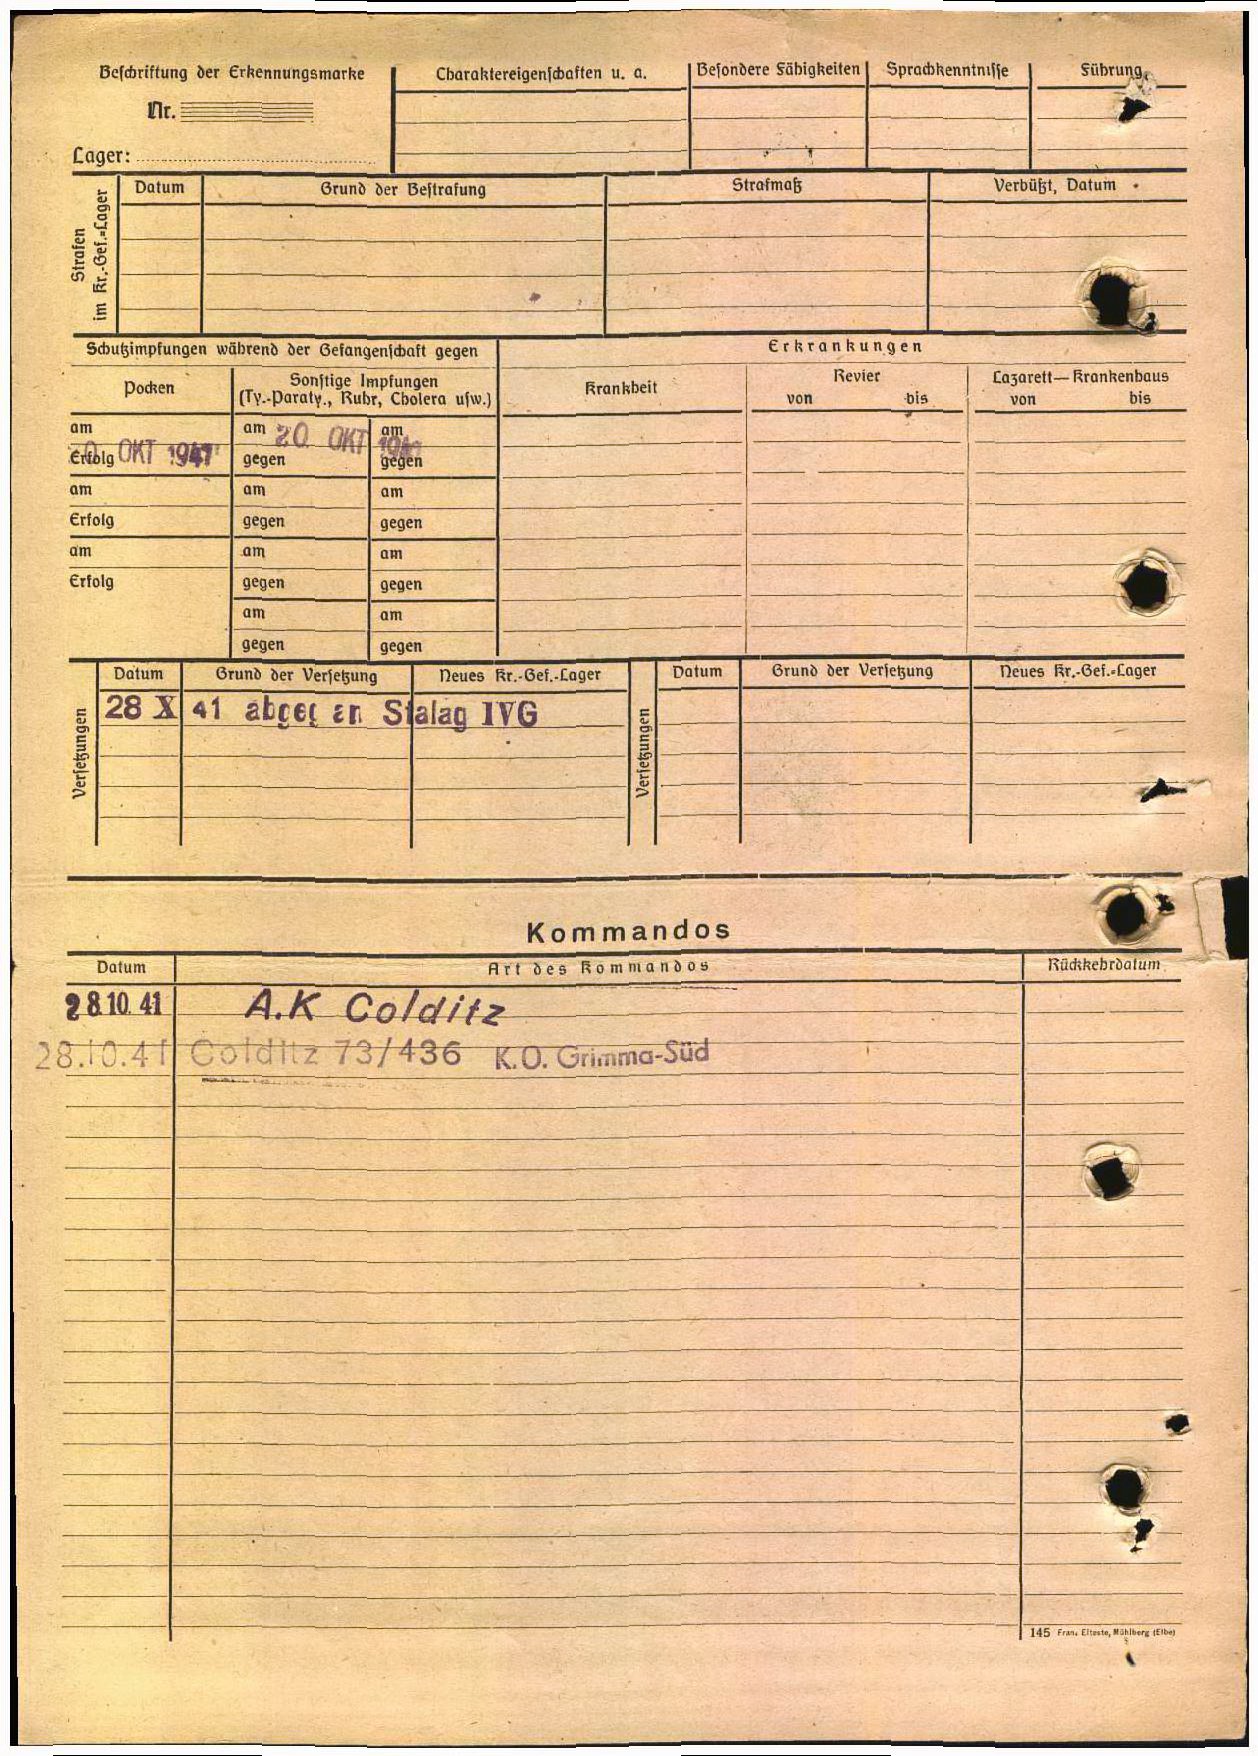 Beschriftung der Erkennungsmarke
Nr.
Lager:
Charaktereigenschaften u. a.
Besondere Fähigkeiten
Sprachkenntnisse
Führung
Strafen im Kr.-Gef.-Lager
Datum
Grund der Bestrafung
Strafmaß
Verbüßt, Datum
Schutzimpfungen während der Gefangenschaft gegen
Erkrankungen
Pocken
Sonstige Impfungen
(Ty.-Paraty., Ruhr, Cholera usw.)
Krankheit
Revier
von bis
Lazarett—Krankenhaus
von bis
am am 20. OKT 1941 am
Erfolg 20. OKT 1941 gegen gegen
am am am
Erfolg gegen gegen
am am am
Erfolg gegen gegen
am am
gegen gegen
Versetzungen
Datum Grund der Versetzung Neues Kr.-Gef.-Lager
28 X 41 abgeg an Stalag IVG
Versetzungen
Datum Grund der Versetzung Neues Kr.-Gef.-Lager
Kommandos
Datum Art des Kommandos Rückkehrdatum
28.10.41 A.K Colditz
28.10.41 Colditz 73/436 K.O. Grimma-Süd
145 Franz Elteste, Mühlberg (Elbe)